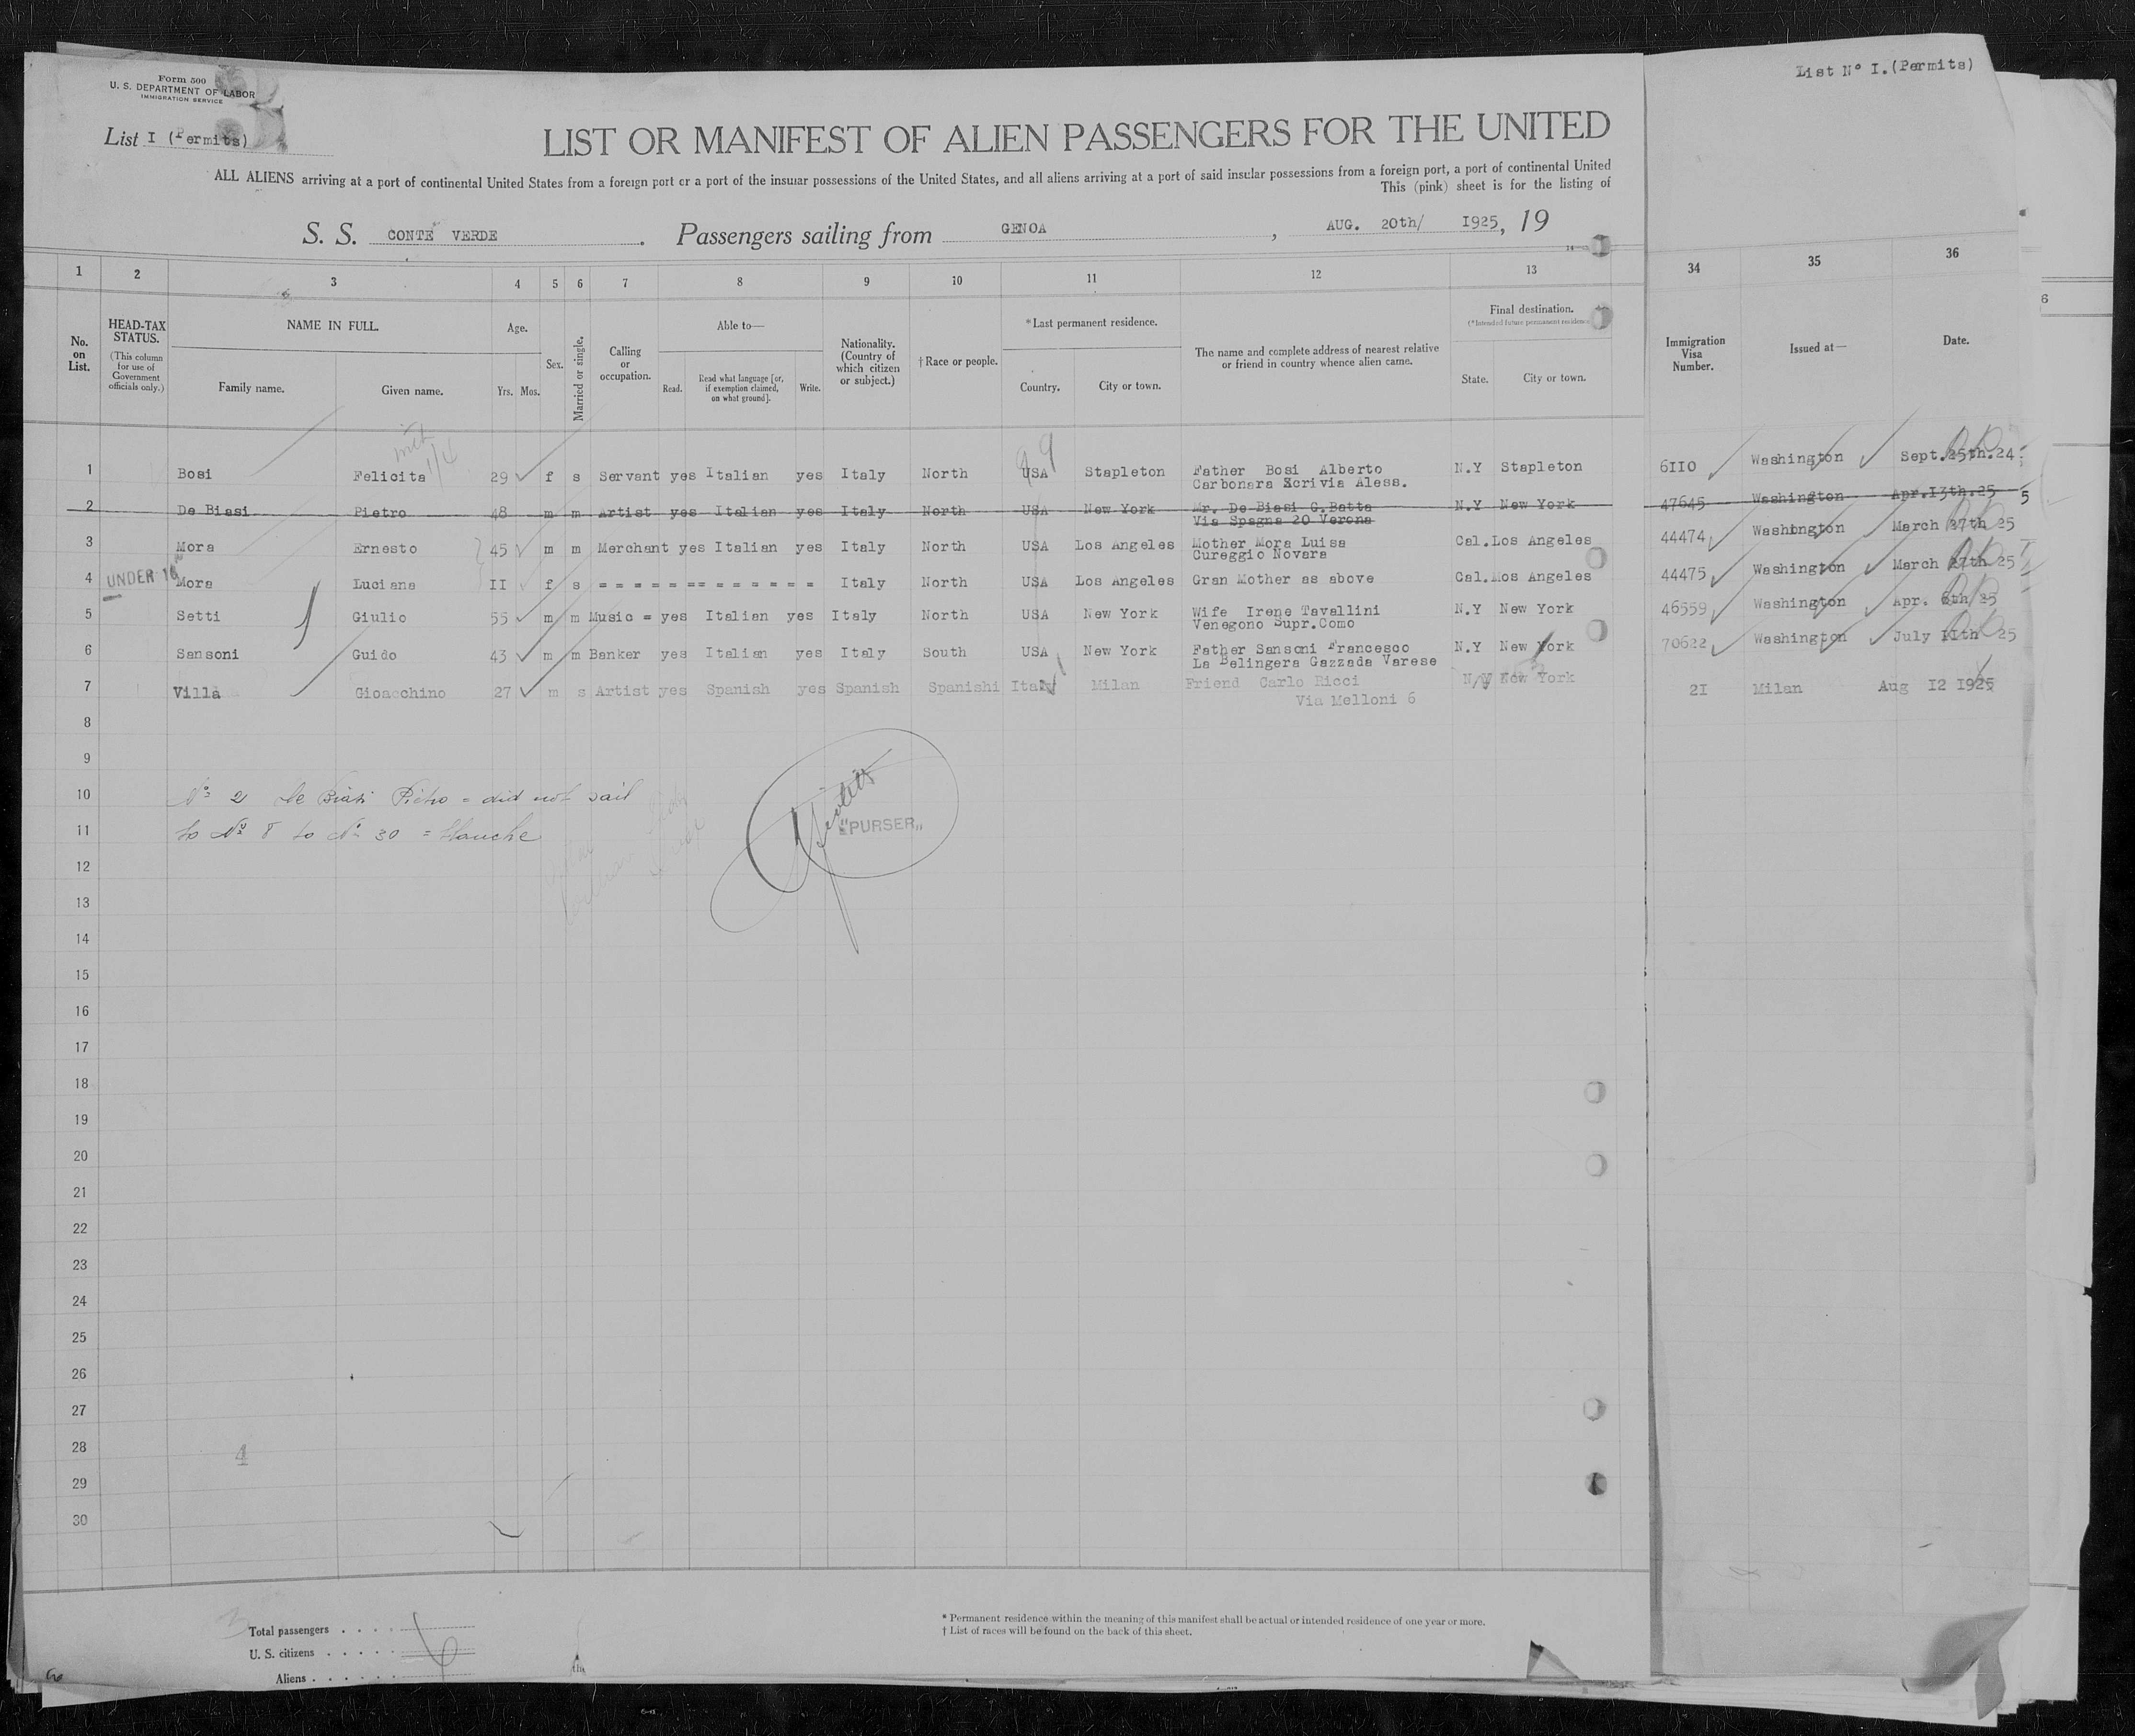 Form 500
U. S. DEPARTMENT OF LABOR
IMMIGRATION SERVICE
List I (Permits)
List Nº I.(Permits)
LIST OR MANIFEST OF ALIEN PASSENGERS FOR THE UNITED
ALL ALIENS arriving at a port of continental United States from a foreign port or a port of the insular possessions of the United States, and all aliens arriving at a port of said insular possessions from a foreign port, a port of continental United
This (pink) sheet is for the listing of
S. S. CONTE VERDE. Passengers sailing from GENOA, AUG. 20th/ 1925, 19
1 2 3 4 5 6 7 8 9 10 11 12 13 34 35 36
No. on List.
HEAD-TAX STATUS.
(This column for use of Government officials only.)
NAME IN FULL.
Family name. Given name.
Age.
Yrs. Mos.
Sex.
Married or single.
Calling or occupation.
Able to—
Read. Read what language [or, if exemption claimed, on what ground]. Write.
Nationality. (Country of which citizen or subject.)
† Race or people.
*Last permanent residence.
Country. City or town.
The name and complete address of nearest relative or friend in country whence alien came.
Final destination.
(*Intended future permanent residence
State. City or town.
Immigration Visa Number.
Issued at—
Date.
1 Bosi Felicita 29 f s Servant yes Italian yes Italy North USA Stapleton Father Bosi Alberto N.Y Stapleton 6II0 Washington Sept.25th.24
Carbonara Scrivia Aless.
2 De Biasi Pietro 48 m m Artist yes Italian yes Italy North USA New York Mr. De Biasi G.Batta N.Y New York 47645 Washington Apr.I3th.25
Via Spagna 20 Verona
3 Mora Ernesto 45 m m Merchant yes Italian yes Italy North USA Los Angeles Mother Mora Luisa Cal. Los Angeles 44474 Washington March 27th 25
Cureggio Novara
4 UNDER 16 Mora Luciana II f s = = = = = = == = = = = = = Italy North USA Los Angeles Gran Mother as above Cal. Mos Angeles 44475 Washington March 27th 25
5 Setti Giulio 55 m m Music = yes Italian yes Italy North USA New York Wife Irene Tavallini N.Y New York 46559 Washington Apr. 8th 25
Venegono Supr.Como
6 Sansoni Guido 43 m m Banker yes Italian yes Italy South USA New York Father Sansoni Francesco N.Y New York 70622 Washington July IIth 25
La Belingera Gazzada Varese
7 Villa Gioacchino 27 m s Artist yes Spanish yes Spanish Spanishi Italy Milan Friend Carlo Ricci N/Y New York 2I Milan Aug I2 I925
Via Melloni 6
8
9
10 Nº 2 De Biasi Pietro = did not sail
11 to Nº 8 to Nº 30 = Blanche
"PURSER"
12
13
14
15
16
17
18
19
20
21
22
23
24
25
26
27
28
4
29
30
Total passengers . . . .
U. S. citizens . . . . .
Aliens . . . . . .
6
* Permanent residence within the meaning of this manifest shall be actual or intended residence of one year or more.
† List of races will be found on the back of this sheet.